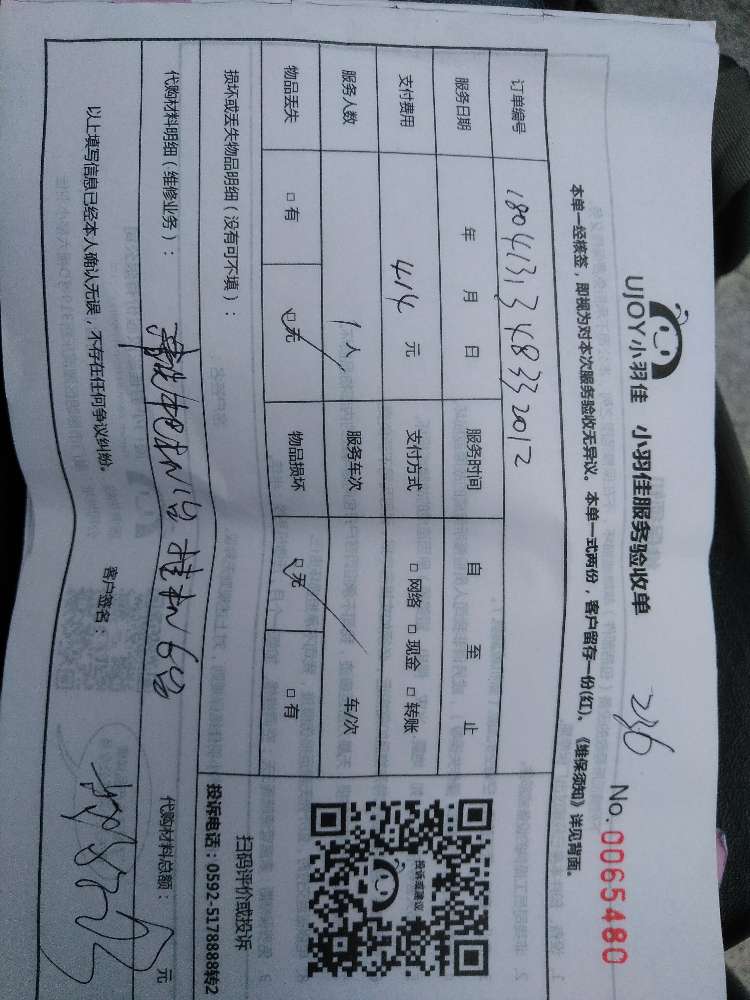 UJOY小羽佳 小羽佳服务验收单 236 No.0065480
本单一经核签，即视为对本次服务验收无异议。本单一式两份，客户留存一份(红)。《维保须知》详见背面。
订单编号 1804131348332012
服务日期 年 月 日 服务时间 自 至 止
支付费用 414 元 支付方式 □ 网络 □ 现金 □ 转账
服务人数 1 人 服务车次 车/次
物品丢失 □ 有 □ 无 物品损坏 □ 无 □ 有
损坏或丢失物品明细（没有可不填）：
投诉或建议
扫码评价或投诉
投诉电话：0592-5178888转2
代购材料明细（维修业务）： 挂机6台 代购材料总额： 元
以上填写信息已经本人确认无误，不存在任何争议纠纷。 客户签名：